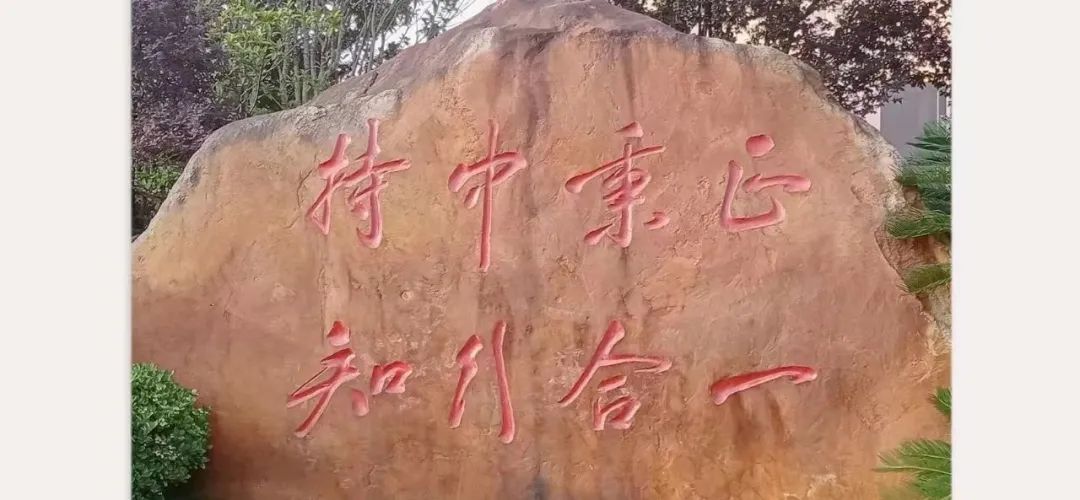 持中秉正
知行合一